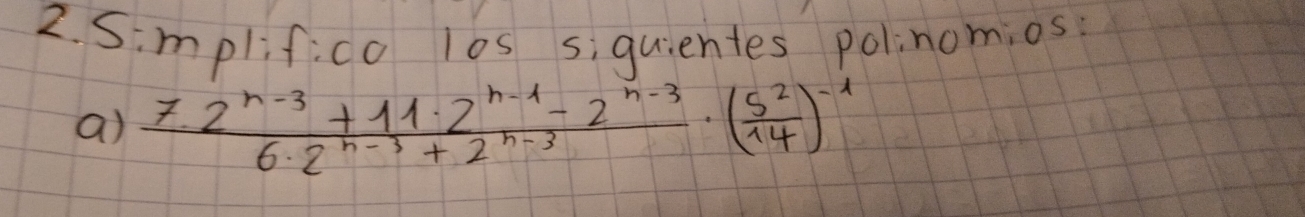 2. Simplifico los siguientes polinomios:
a) \frac{7.2^{n-3} + 11 \cdot 2^{n-1} - 2^{n-3}}{6 \cdot 2^{n-3} + 2^{n-3}} \cdot \left(\frac{5^2}{14}\right)^{-1}